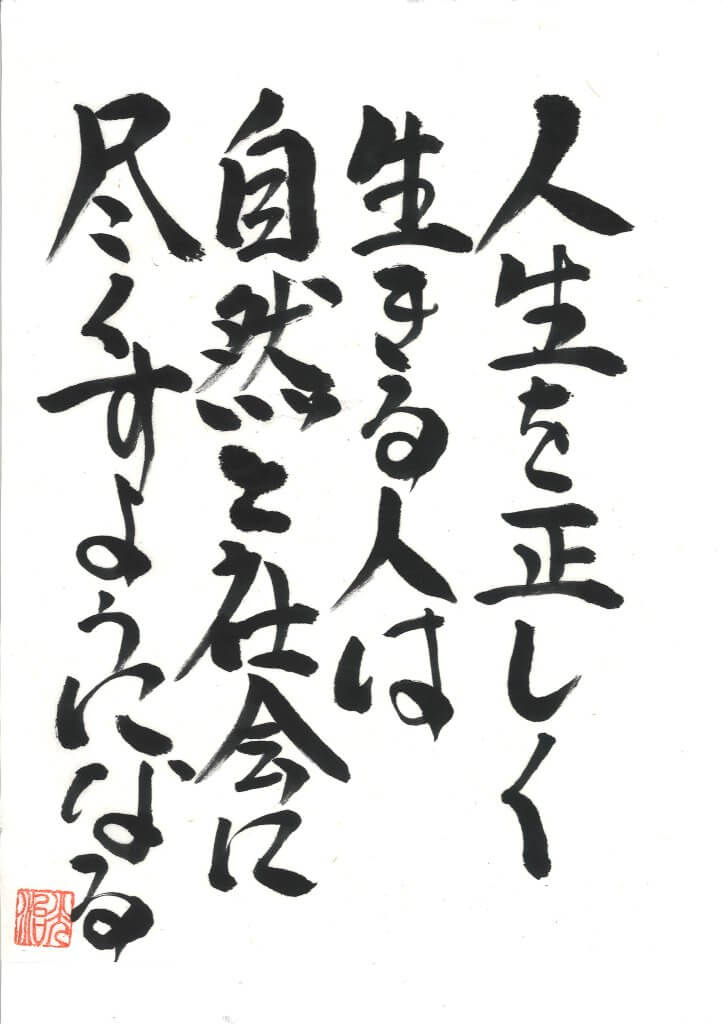 人生を正しく
生きる人は
自然と社会に
尽くすようになる